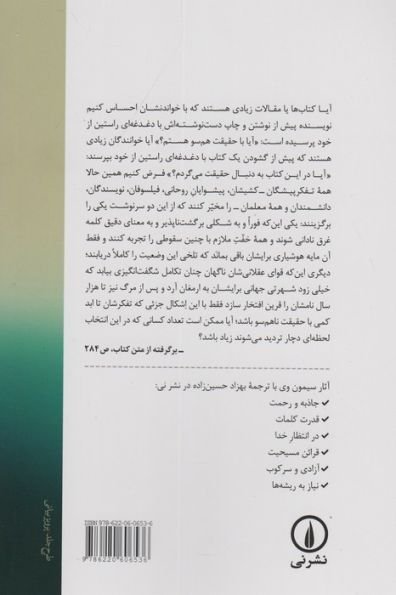 آیا کتاب‌ها یا مقالات زیادی هستند که با خواندنشان احساس کنیم
نویسنده پیش از نوشتن و چاپ دست‌نوشته‌اش با دغدغه‌ای راستین از
خود پرسیده است: «آیا با حقیقت هم‌سو هستم؟» آیا خوانندگان زیادی
هستند که پیش از گشودن یک کتاب با دغدغه‌ای راستین از خود بپرسند:
«آیا در این کتاب به دنبال حقیقت می‌گردم؟» فرض کنیم همین حالا
همهٔ تفکرپیشگان ـ کشیشان، پیشوایان روحانی، فیلسوفان، نویسندگان،
دانشمندان و همهٔ معلمان ـ را مخیّر کنند که از این دو سرنوشت یکی را
برگزینند: یکی این‌که فوراً و به شکلی برگشت‌ناپذیر و به معنای دقیق کلمه
غرق نادانی شوند و همهٔ خفّتِ ملازم با چنین سقوطی را تجربه کنند و فقط
آن مایه هوشیاری برایشان باقی بماند که تلخی این وضعیت را کاملاً دریابند؛
دیگری این‌که قوای عقلانی‌شان ناگهان چنان تکامل شگفت‌انگیزی بیابد که
خیلی زود شهرتی جهانی برایشان به ارمغان آرد و پس از مرگ نیز تا هزار
سال نامشان را قرین افتخار سازد فقط با این اِشکال جزئی که تفکرشان تا ابد
کمی با حقیقت ناهم‌سو باشد؛ آیا ممکن است تعداد کسانی که در این انتخاب
لحظه‌ای دچار تردید می‌شوند زیاد باشد؟
ـ برگرفته از متن کتاب، ص ۲۸۴
آثار سیمون وی با ترجمهٔ بهزاد حسین‌زاده در نشر نی:
✓ جاذبه و رحمت
✓ قدرت کلمات
✓ در انتظار خدا
✓ قرائن مسیحیت
✓ آزادی و سرکوب
✓ نیاز به ریشه‌ها
طرح جلد: پرویز بیانی
ISBN 978-622-06-0653-6
9 786220 606536
نشرنی